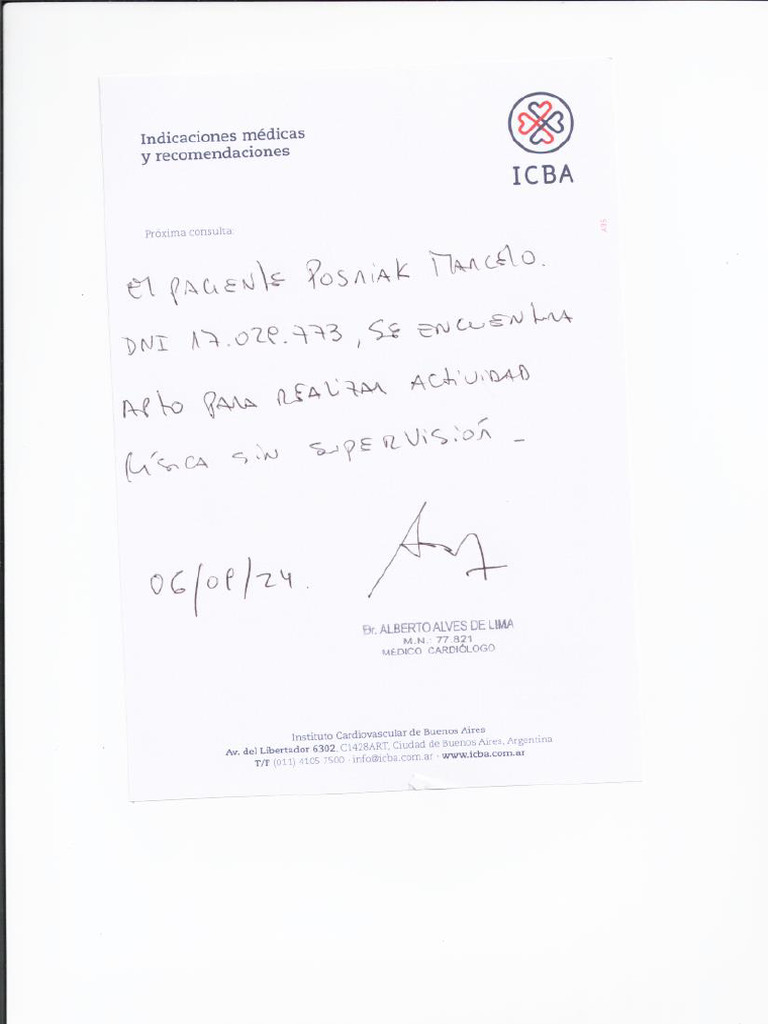 Indicaciones médicas
y recomendaciones
ICBA
Próxima consulta:
El paciente Posniak Marcelo.
DNI 17.029.773, se encuentra
apto para realizar actividad
física sin supervisión -
06/09/24.
Dr. ALBERTO ALVES DE LIMA
M.N.: 77.821
MÉDICO CARDIÓLOGO
Instituto Cardiovascular de Buenos Aires
Av. del Libertador 6302, C1428ART, Ciudad de Buenos Aires, Argentina
T/F (011) 4105 7500 - info@icba.com.ar - www.icba.com.ar